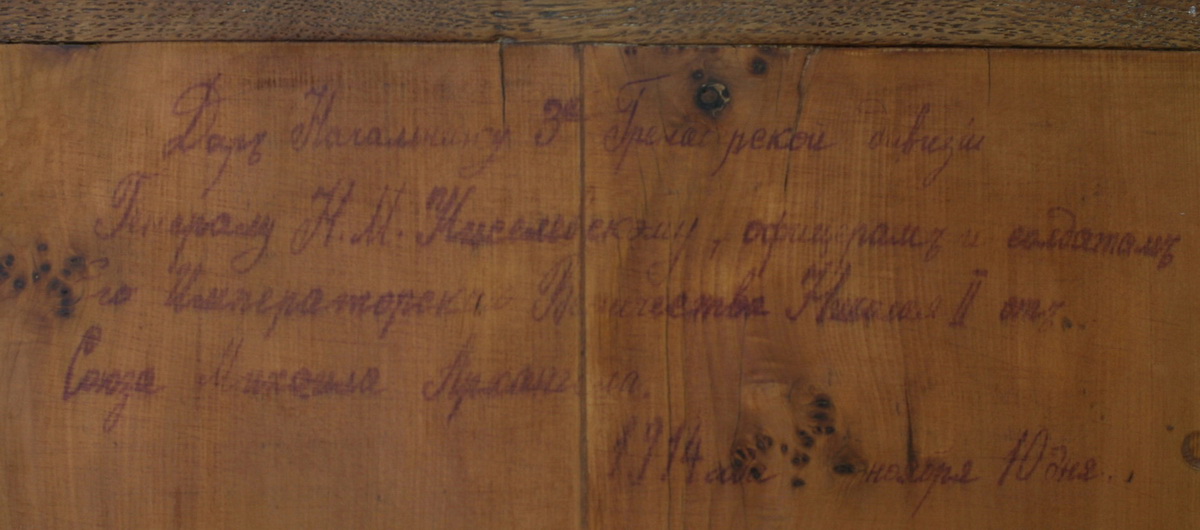 Даръ Начальнику 3ей Гренадерской дивизіи
Генералу Н. М. Киселевскому, офицерамъ и солдатамъ
Его Императорскаго Величества Николая II отъ
Союза Михаила Архангела.
1914 года ноября 10 дня..